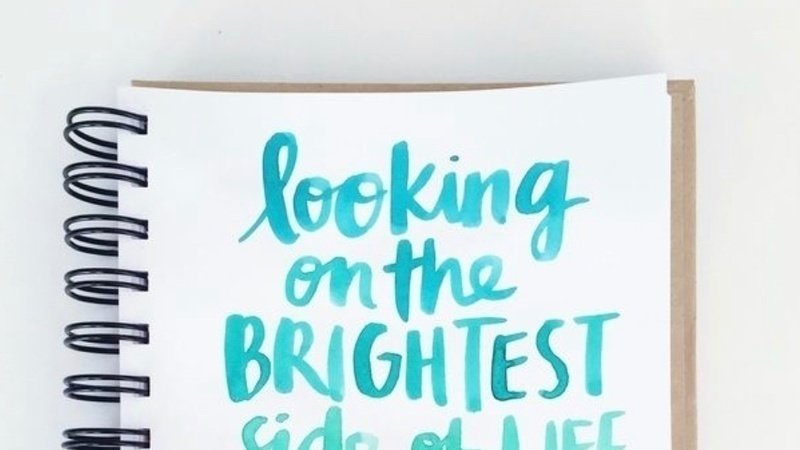 looking
on the
BRIGHTEST
side of LIFE